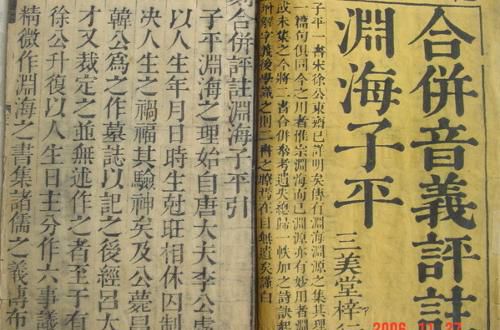 合併音義評註
淵海子平
三美堂梓
子平一書宋徐公東齋已詳明矣傳有淵海淵源之集其理
一篇句俱同今之用者惟宗淵海而已淵源亦有妙用者淵
或未集之今將二書合併參考遺失總歸一帙加之詩訣起
附解字義後學識之則二書之瞭然在目無遺矣謹白
刻合併評註淵海子平引
子平淵海之理始自唐大夫李公虛
以人生年月日時生尅旺相休囚制
決人生之禍福其驗神矣及公薨昌
韓公為之作墓誌以記之後經呂大
才又裁定之並無述作之者至于有
徐公升復以人生日主分作六事議
精微作淵海之書集諸儒之義傳布
2006 11 27